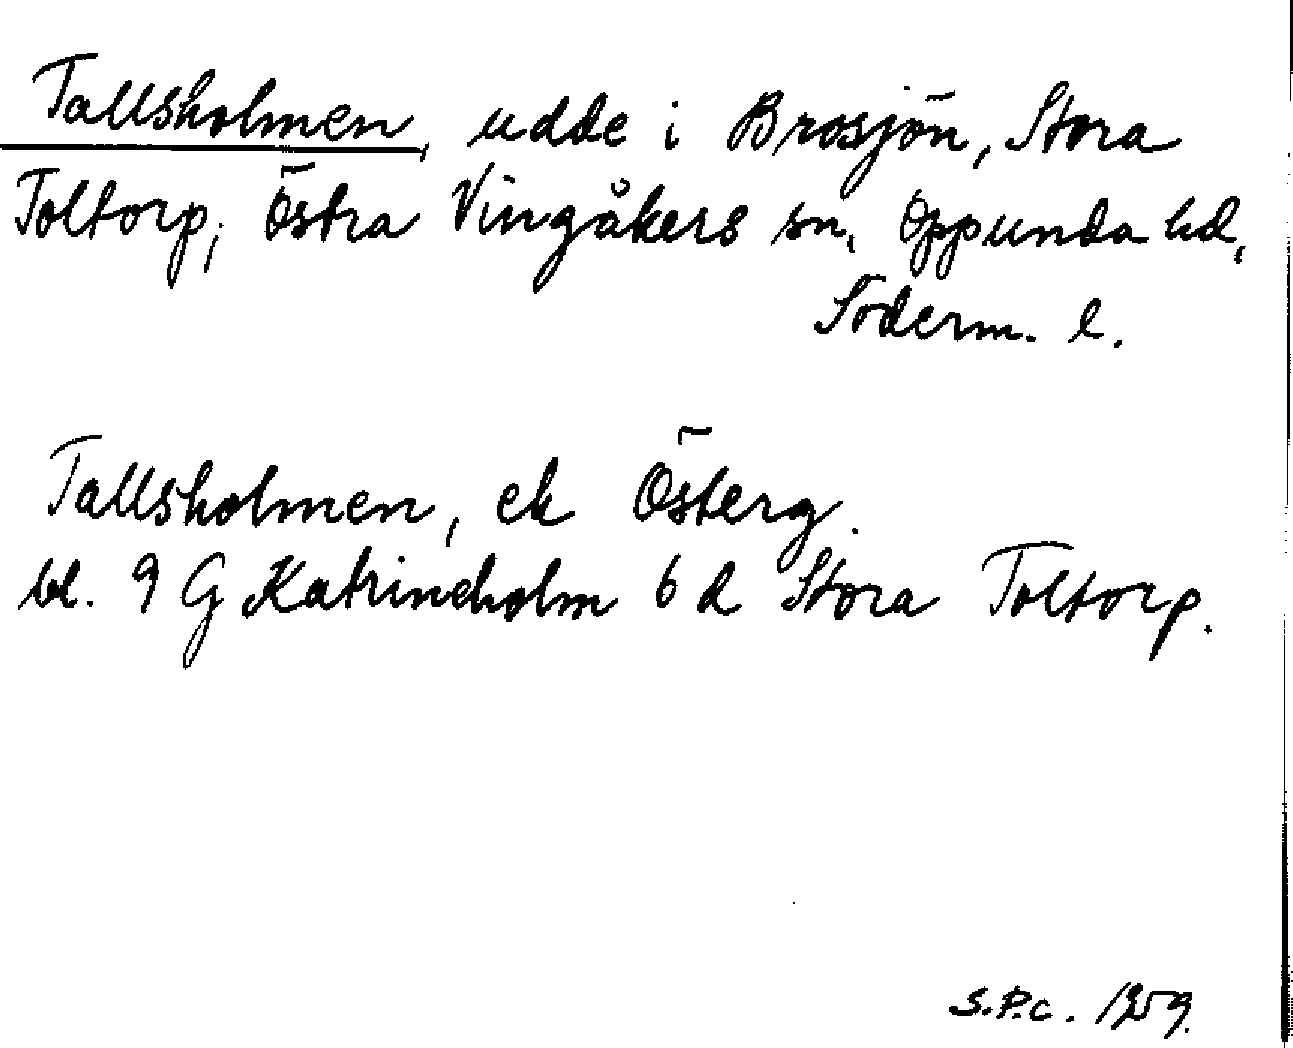 Tallsholmen, udde i Brosjön, Stora
Toltorp; Östra Vingåkers sn, Oppunda hd,
Söderm. l.
Tallsholmen, ek Österg.
bl. 9 G Katrineholm 6 d Stora Toltorp.
S.P.C. 1959.